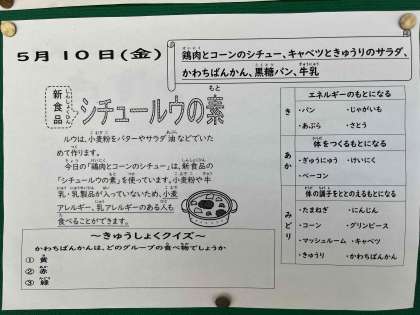 5月10日(金)
鶏肉とコーンのシチュー、キャベツときゅうりのサラダ、
かわちばんかん、黒糖パン、牛乳
新食品
シチュールウの素
ルウは、小麦粉をバターやサラダ油などでいた
めて作ります。
今日の「鶏肉とコーンのシチュー」は、新食品の
「シチュールウの素」を使っています。小麦粉や牛
乳・乳製品が入っていないため、小麦
アレルギー、乳アレルギーのある人も
食べることができます。
～きゅうしょくクイズ～
かわちばんかんは、どのグループの食べ物でしょうか
① 黄
② 赤
③ 緑
き
エネルギーのもとになる
・パン ・じゃがいも
・あぶら ・さとう
あか
体をつくるもとになる
・ぎゅうにゅう ・けいにく
・ベーコン
みどり
体の調子をととのえるもとになる
・たまねぎ ・にんじん
・コーン ・グリンピース
・マッシュルーム ・キャベツ
・きゅうり ・かわちばんかん